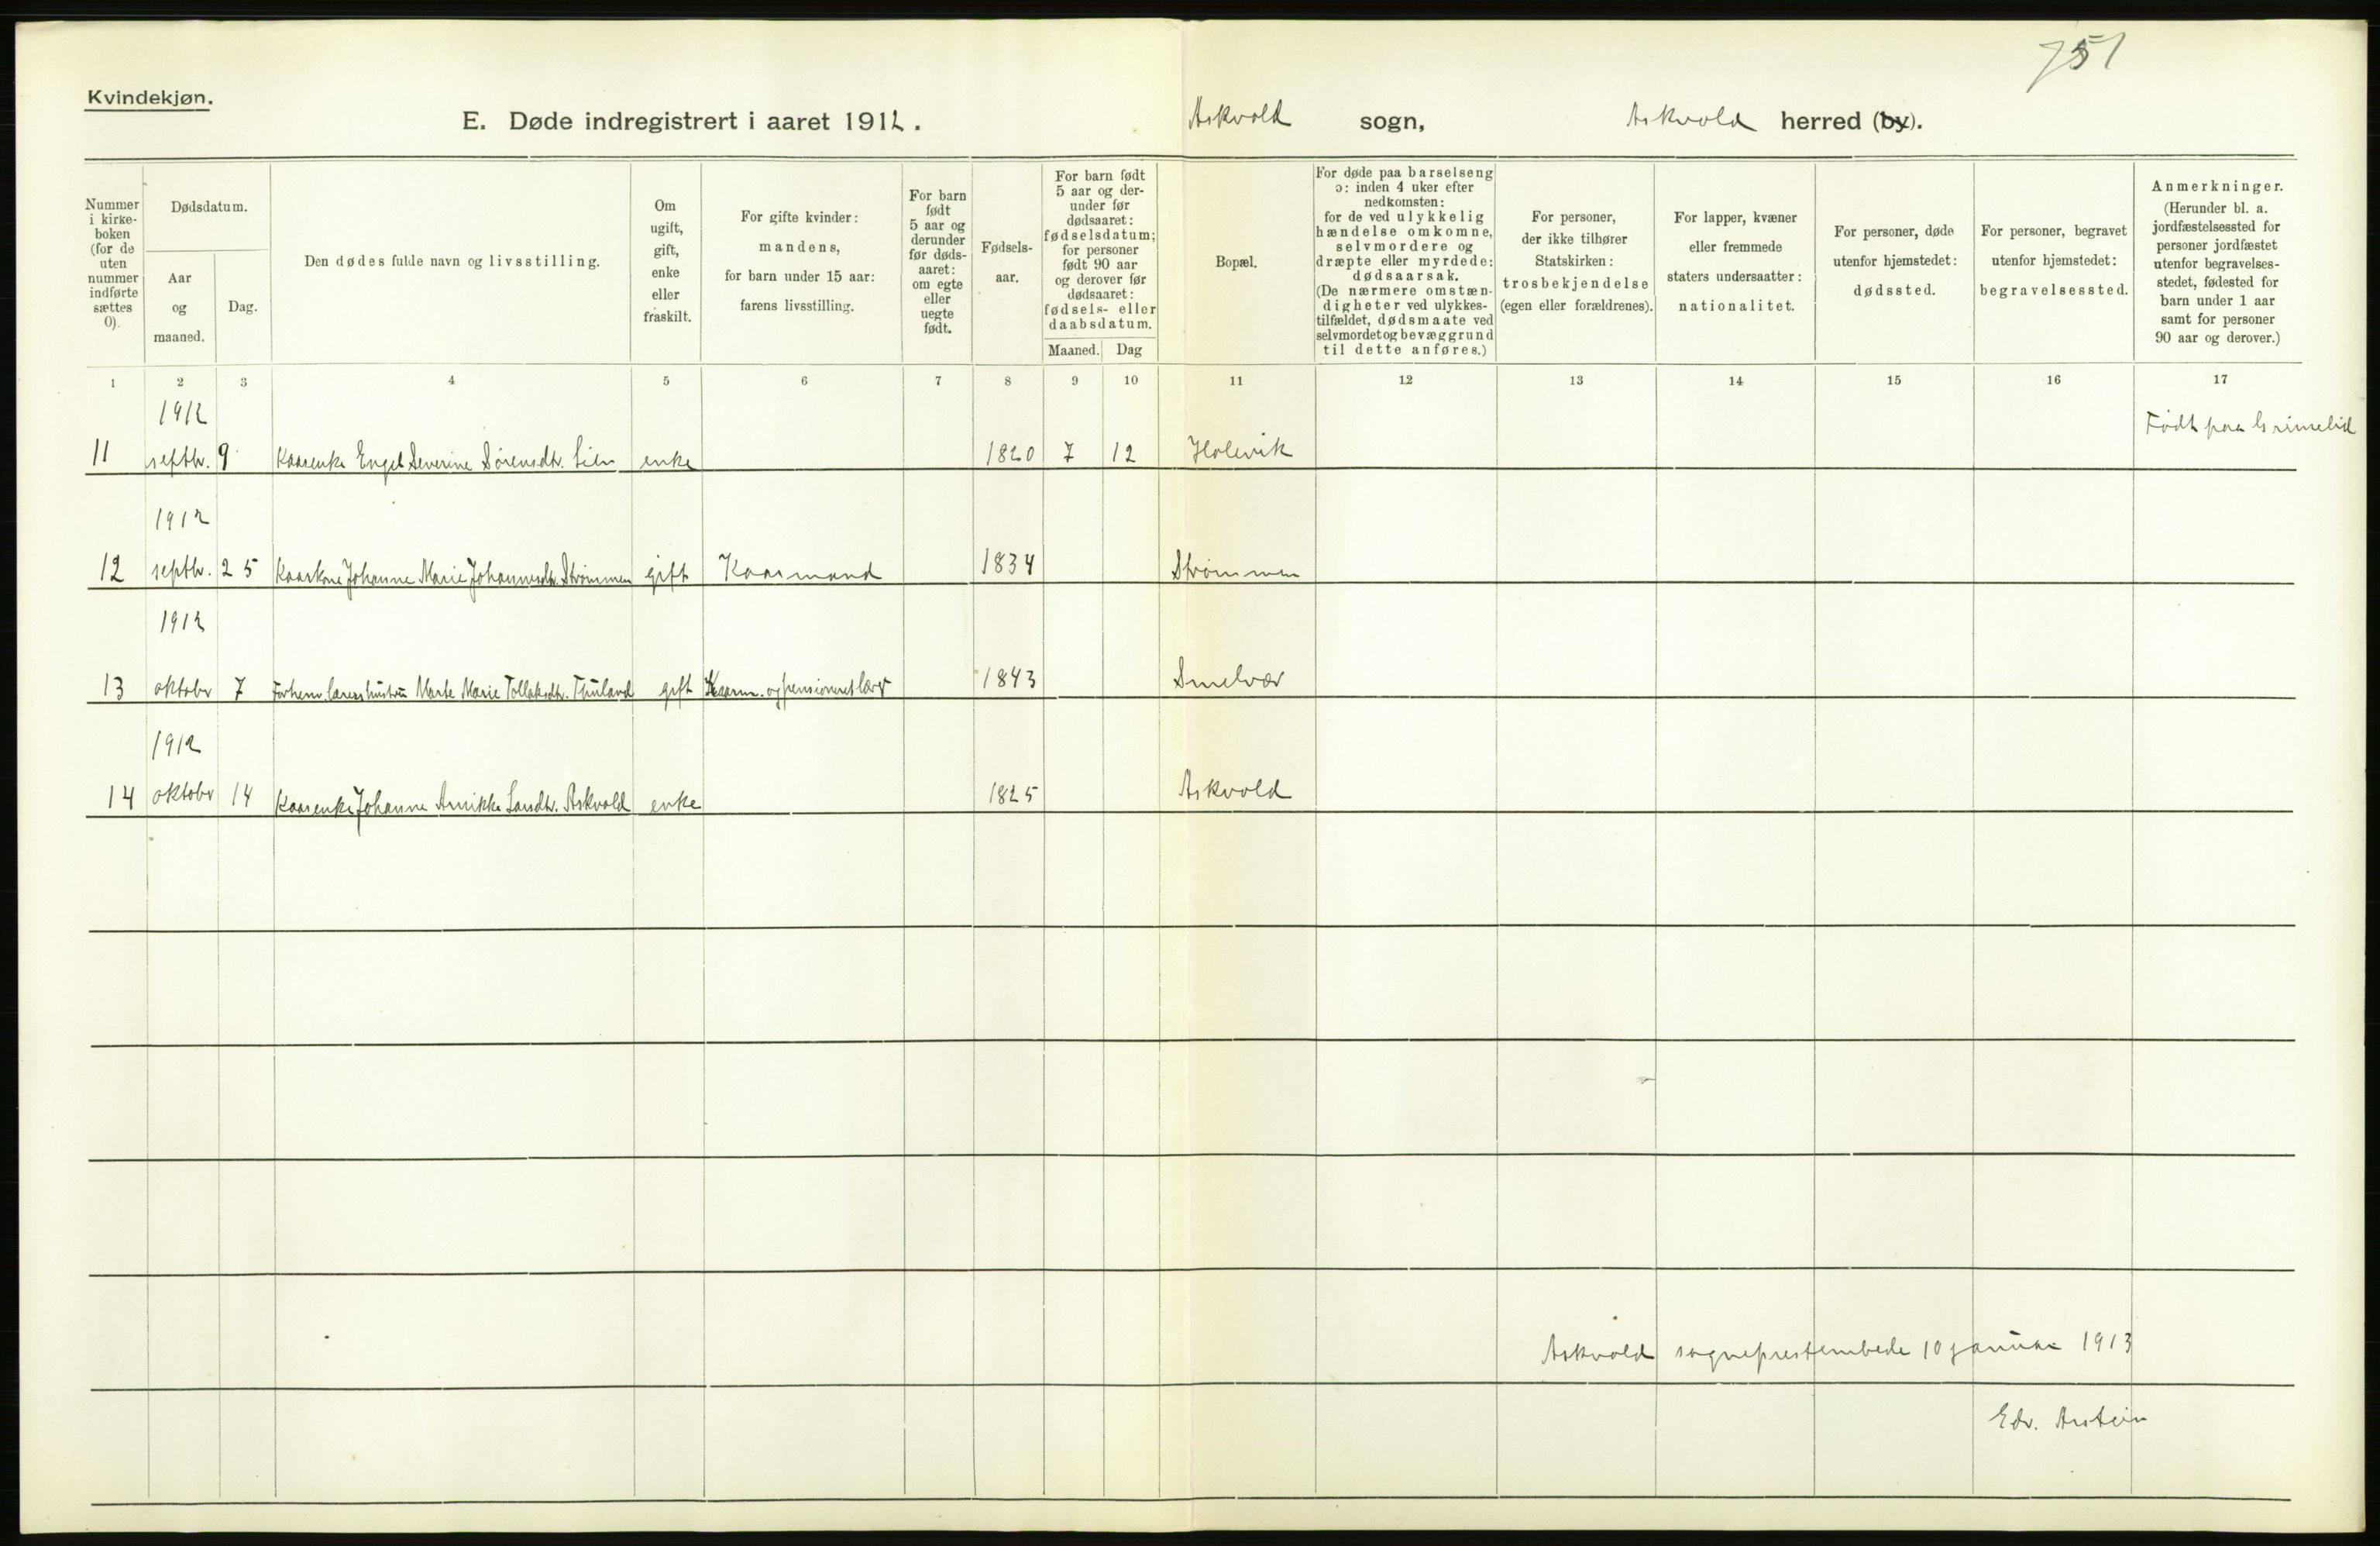 751
Kvindekjøn.
E. Døde indregistrert i aaret 1912. Askvold sogn, Askvold herred (by).
Nummer i kirkeboken (for de uten nummer indførte sættes 0).
Dødsdatum.
Aar og maaned.
Dag.
Den dødes fulde navn og livsstilling.
Om ugift, gift, enke eller fraskilt.
For gifte kvinder: mandens, for barn under 15 aar: farens livsstilling.
For barn født 5 aar og derunder før dødsaaret: om egte eller uegte født.
Fødselsaar.
For barn født 5 aar og derunder før dødsaaret: fødselsdatum; for personer født 90 aar og derover før dødsaaret: fødsels- eller daabsdatum.
Maaned. Dag
Bopæl.
For døde paa barselseng ɔ: inden 4 uker efter nedkomsten: for de ved ulykkelig hændelse omkomne, selvmordere og dræpte eller myrdede: dødsaarsak. (De nærmere omstændigheter ved ulykkestilfældet, dødsmaate ved selvmordet og bevæggrund til dette anføres.)
For personer, der ikke tilhører Statskirken: trosbekjendelse (egen eller forældrenes).
For lapper, kvæner eller fremmede staters undersaatter: nationalitet.
For personer, døde utenfor hjemstedet: dødssted.
For personer, begravet utenfor hjemstedet: begravelsessted.
Anmerkninger. (Herunder bl. a. jordfæstelsessted for personer jordfæstet utenfor begravelsesstedet, fødested for barn under 1 aar samt for personer 90 aar og derover.)
1 2 3 4 5 6 7 8 9 10 11 12 13 14 15 16 17
1912 Født paa Grimelid
11 septbr. 9 Kaarenke Engel Severine Sørensdtr. Lien enke 1820 7 12 Holevik
1912
12 septbr. 25 Kaarkone Johanne Marie Johannesdtr. Strømmen gift Kaarmand 1834 Strømmen
1912
13 oktobr 7 Forhenv. lærershustru Marte Marie Tollaksdtr. Thuland gift Kaarm. og pensioneret lærer 1843 Smelvær
1912
14 oktobr 14 Kaarenke Johanne Annikke Larsdtr. Askvold enke 1825 Askvold
Askvold sogneprestembede 10 januar 1913
Edv. Arstein